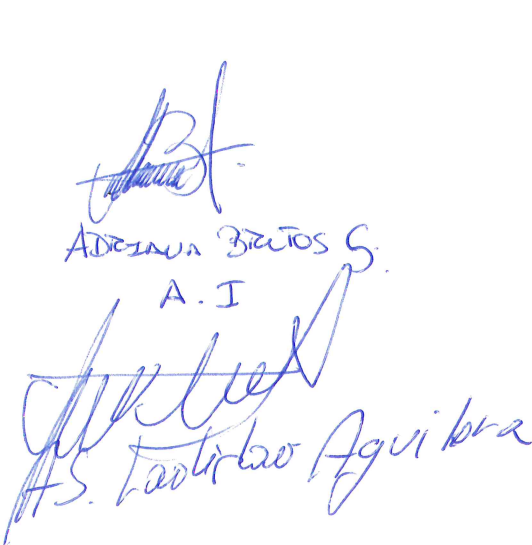 ADRIANA BRITOS G.
A. I
AS. Ladislao Aguilera